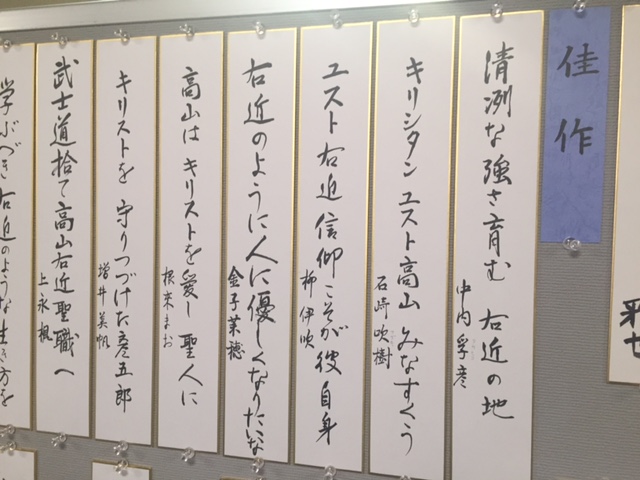 佳作
清冽な強さ育む 右近の地
中内孚彦
キリシタン ユスト高山 みなすくう
石崎吹樹
ユスト右近 信仰こそが彼自身
柳伊吹
右近のように人に優しくなりたいな
金子茉穂
高山は キリストを愛し 聖人に
根来まお
キリストを 守りつづけた彦五郎
増井美帆
武士道捨て高山右近聖職へ
上永楓
学ぶべき右近のような生き方を